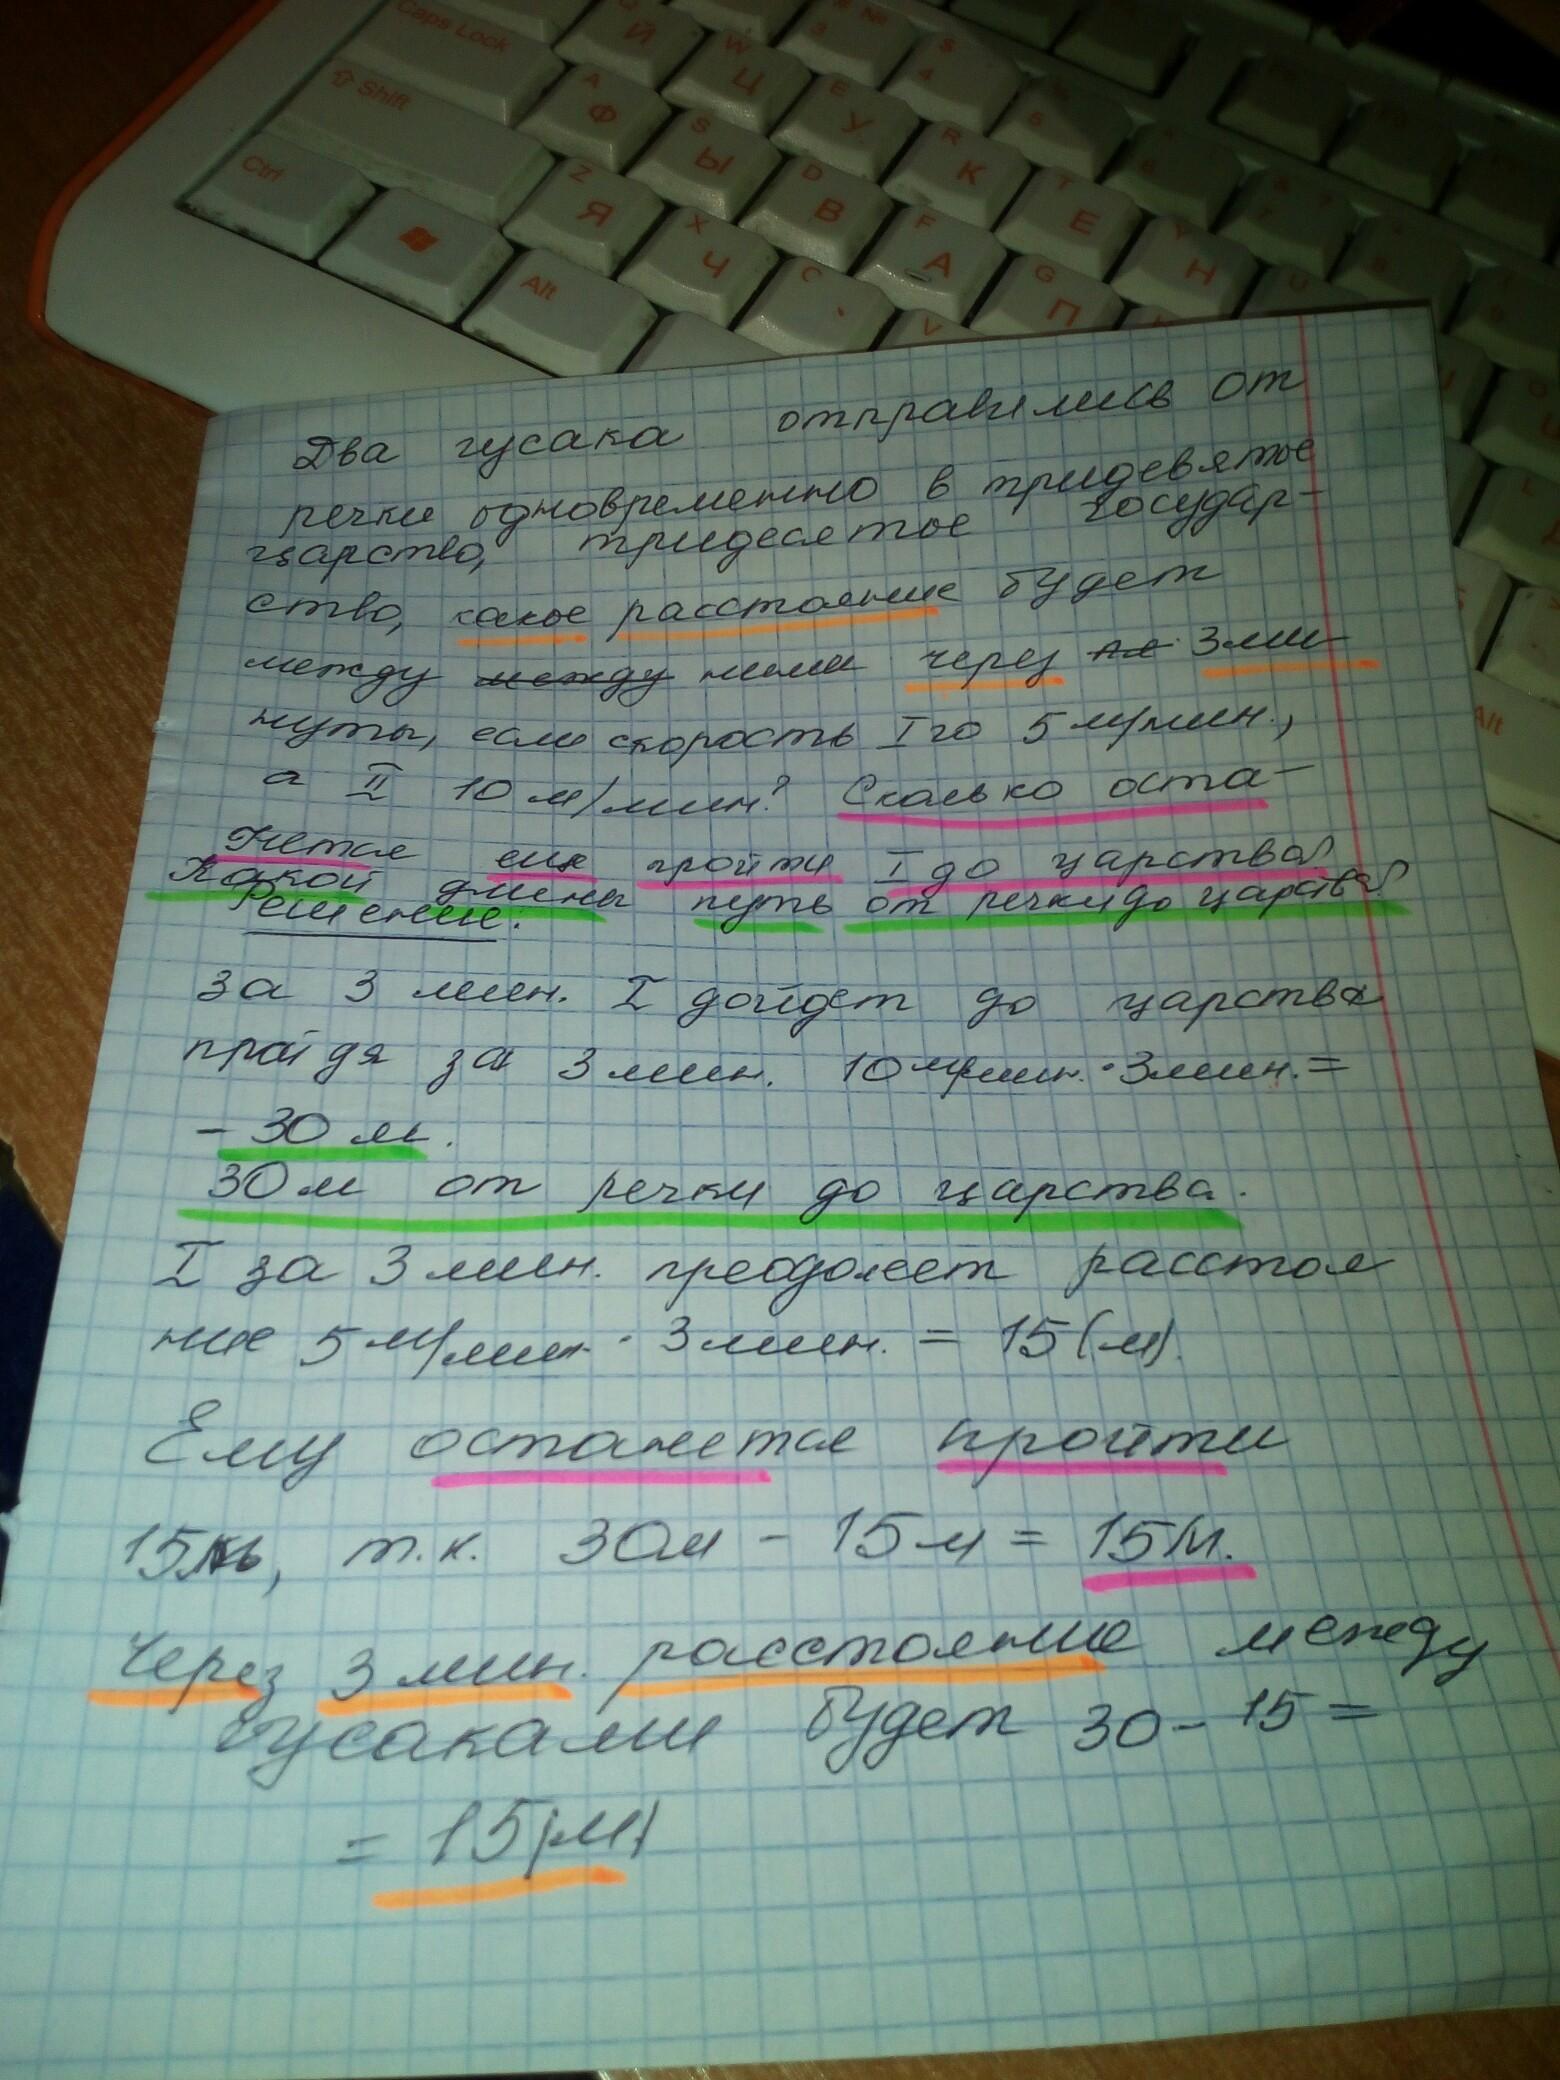 Caps Lock
Shift
Ctrl
Alt
Q Й
W Ц
E У
R К
T Е
Y Н
A Ф
S Ы
D В
F А
G П
Z Я
X Ч
C
V
U
3 №
4
5
6
7
8
Alt
Два гусака отправились от
речки одновременно в тридевятое
царство, тридесятое государ-
ство, какое расстояние будет
между между ними через 3 ми
нуты, если скорость I го 5 м/мин.,
а II 10 м/мин? Сколько оста-
нется еще пройти I до царства?
Какой длины путь от речки до царства?
Решение:
за 3 мин. I дойдет до царства
пройдя за 3 мин. 10 м/мин. · 3 мин. =
- 30 м.
30 м от речки до царства.
I за 3 мин. преодолеет расстоя
ние 5 м/мин · 3 мин. = 15 (м).
Ему останется пройти
15 м, т.к. 30м - 15м = 15 м.
Через 3 мин. расстояние между
гусаками будет 30 - 15 =
= 15 (м)